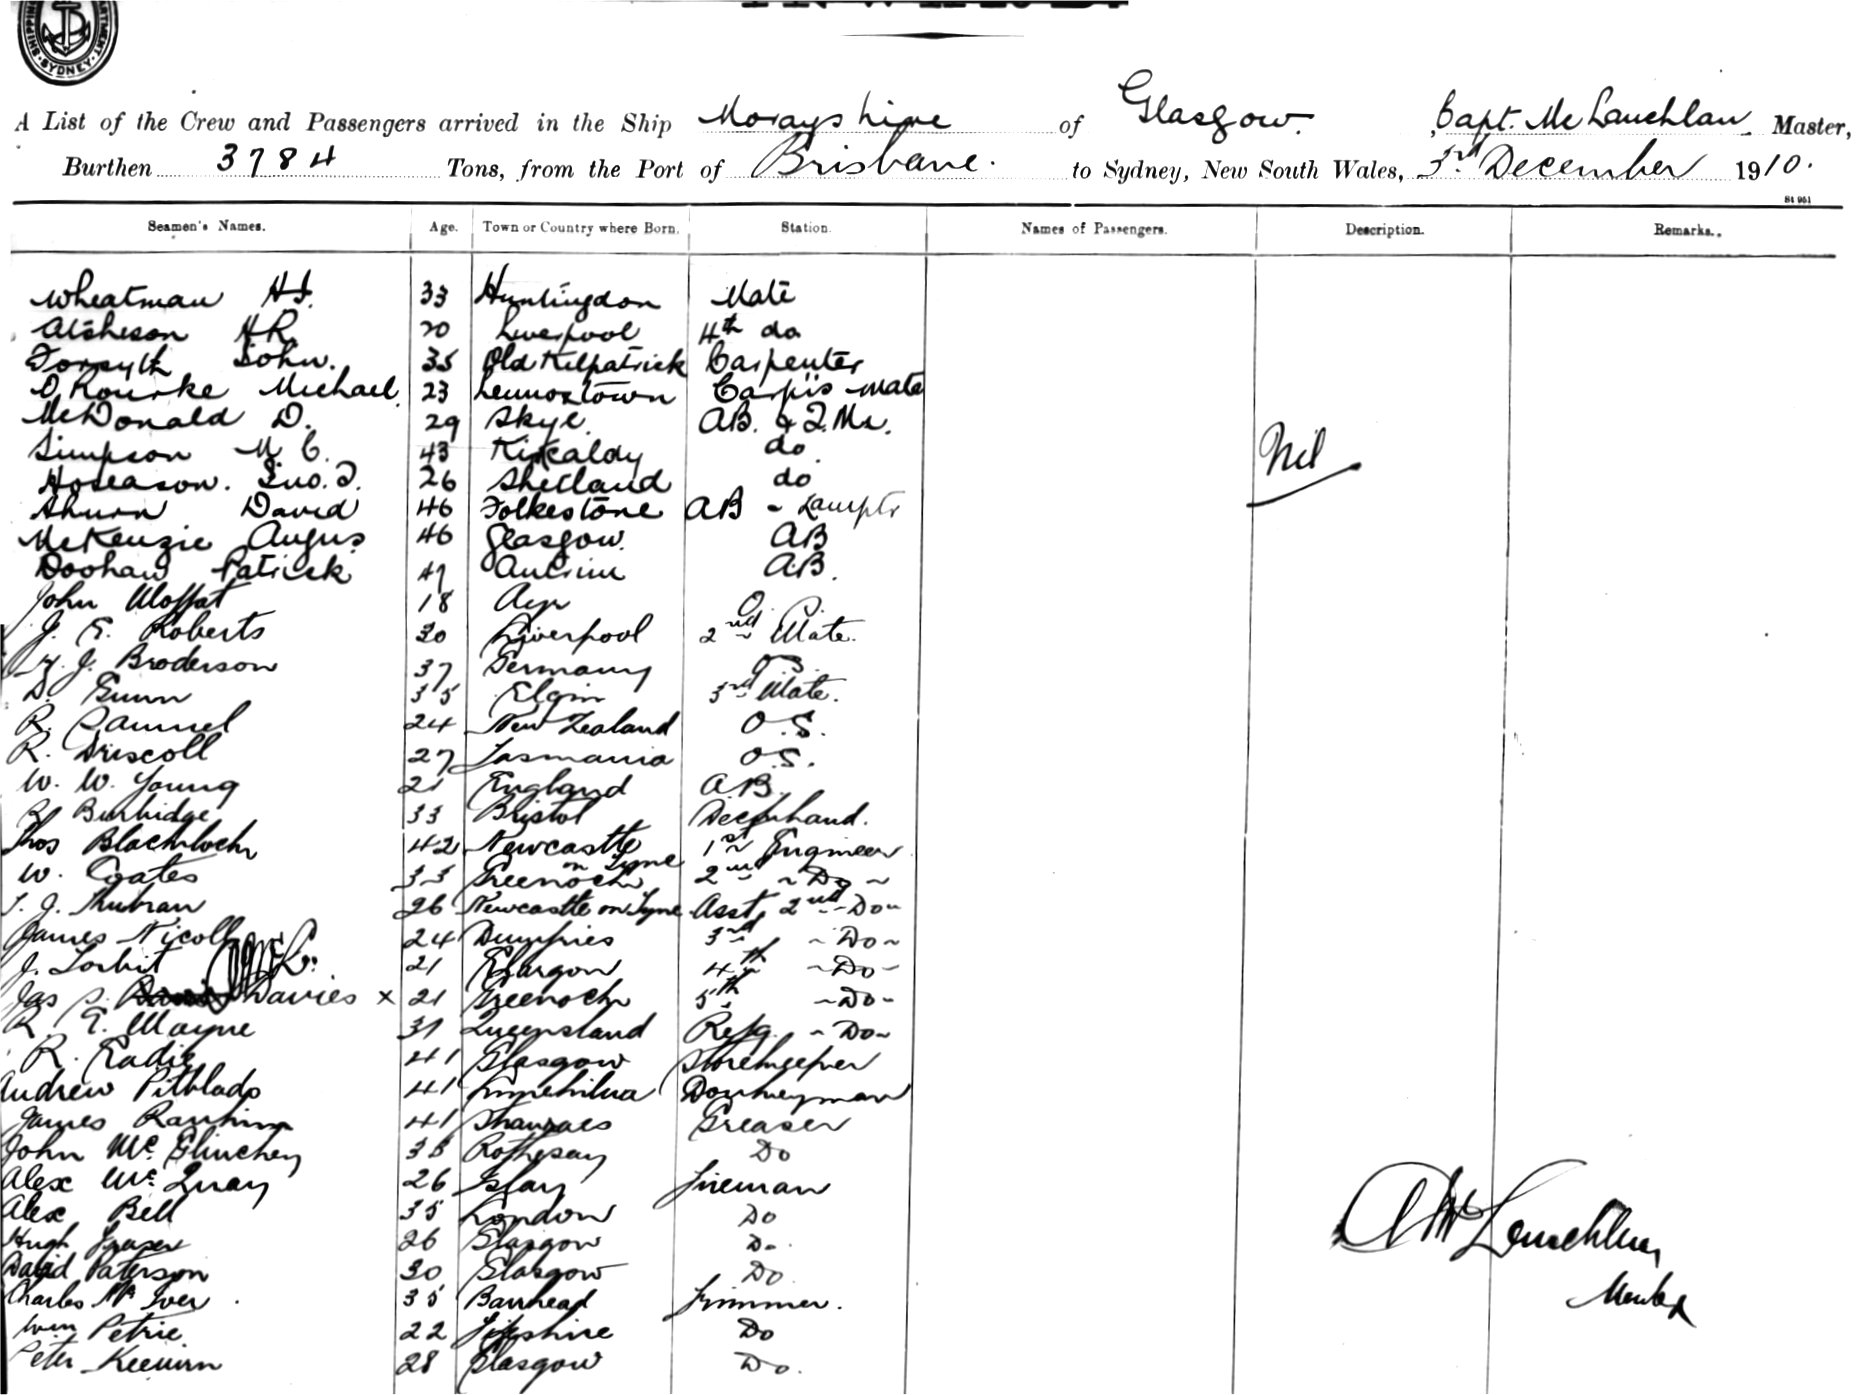 SHIPPING DEPARTMENT SYDNEY
A List of the Crew and Passengers arrived in the Ship Morayshire of Glasgow. Capt. McLauchlan Master,
Burthen 3784 Tons, from the Port of Brisbane. to Sydney, New South Wales, 3rd December 1910.
St 951
Seamen's Names. Age. Town or Country where Born. Station. Names of Passengers. Description. Remarks.
Wheatman 33 Huntingdon Mate
Atcheson H R 20 Liverpool 4th do
Forsyth John. 35 Old Kilpatrick Carpenter
O'Rourke Michael. 23 Lennoxtown Carp's Mate
McDonald D. 29 Skye. AB. & Q.Mr.
Simpson M C. 43 Kirkcaldy do
Nil
Hoseason. Jno. J. 26 Shetland do
Ahurn David 46 Folkestone AB - Lamptr
McKenzie Angus 46 Glasgow. AB
Doohan Patrick 47 Antrim A.B.
John Moffat 18 Ayr
J. E. Roberts 30 Liverpool 2nd Mate.
J. Broderson 37 Germany
D. Gunn 35 Elgin 3rd Mate.
R. Samuel 24 New Zealand O.S.
R. Driscoll 27 Tasmania O.S.
W. W. Young 21 England A.B.
Burbidge 33 Bristol Deckhand.
Thos Blacklock 42 Newcastle on Tyne 1st Engineer
W. Coates 33 Greenock 2nd - Do -
T. J. Thubran 26 Newcastle on Tyne Asst. 2nd - Do -
James Nicoll 24 Dumfries 3rd - Do -
J. Torbit 21 Glasgow 4th - Do -
Jas S. Davies x 21 Greenock 5th - Do -
R. E. Mayne 37 Queensland Refg. - Do -
R. Eadie 41 Glasgow Storekeeper
Andrew Pitblado 41 Donkeyman
James Rankin 41 Greaser
John McGlinchey 38 Rothesay Do
Alex McQuay 26 Islay Fireman
Alex Bell 35 London Do
Hugh Fraser 26 Glasgow Do.
David Paterson 30 Glasgow Do
Charles McIver 35 Barrhead Trimmer.
Wm Petrie 22 Fifeshire Do
Peter Keevirn 28 Glasgow Do.
A McLauchlan
Master